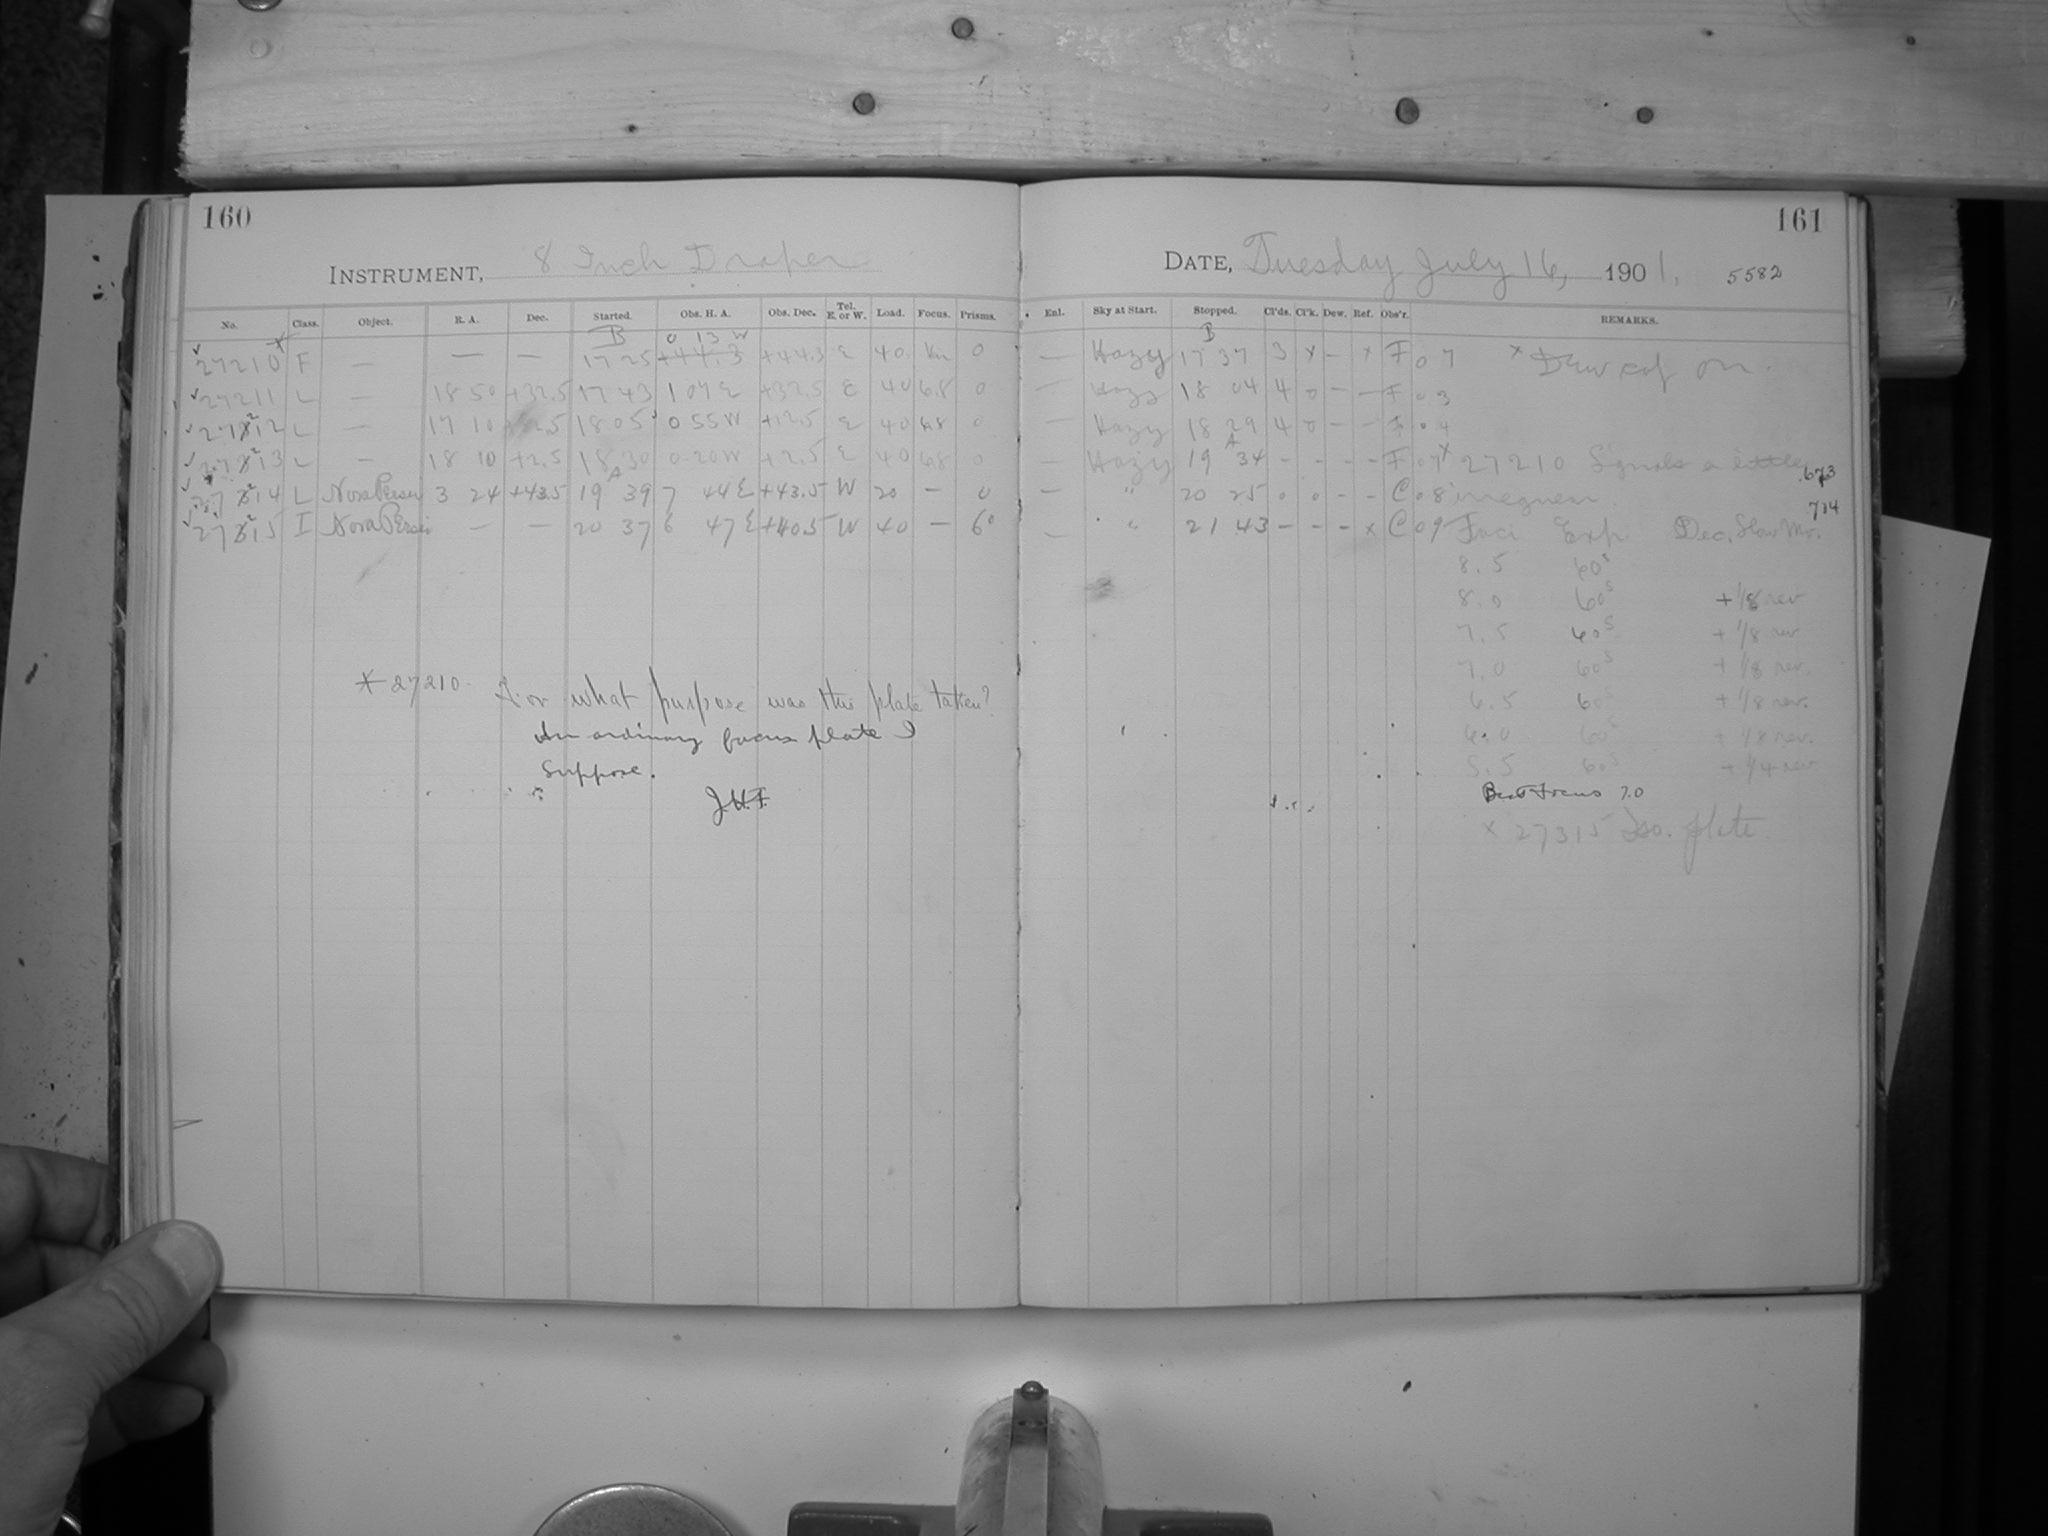 160
INSTRUMENT, 8 Inch Draper
No. Class. Object. R. A. Dec. Started. Obs. H. A. Obs. Dec. Tel. E. or W. Load. Focus. Prisms.
B 0 13 W
27210 F — — — 17 25 +44.3 +44.3 E 40 0
27211 L — 18 50 +32.5 17 43 1 07 E +32.5 E 40 6.8 0
27212 L — 17 10 18 05 0 55 W +12.5 E 40 6.8 0
27213 L — 18 10 +2.5 18 30 0 20 W +2.5 E 40 6.8 0
A
27214 L Nova Persei 3 24 +43.5 19 39 7 44 E +43.5 W 20 — 0
27215 I Nova Persei — — 20 37 6 47 E +40.5 W 40 — 6°
* 27210. For what purpose was this plate taken?
An ordinary focus plate I
suppose.
J.H.F.
161
DATE, Tuesday July 16, 1901. 5582
Enl. Sky at Start. Stopped. Cl'ds. Cl'k. Dew. Ref. Obs'r. REMARKS.
B
— Hazy 17 37 3 x — x F 07 x Dew cap on.
— Hazy 18 04 4 0 — — F 03
— Hazy 18 29 4 0 — — F 04
A
— Hazy 19 34 - - - - F 07 x 27210 Signals a little 673
— " 20 25 0 0 - - C 08 irregular 714
— " 21 43 - - - x C 09 Foci Exp Dec. Slow Mo.
8.5 60s
8.0 60s + 1/8 rev
7.5 60s + 1/8 rev
7.0 60s + 1/8 rev.
6.5 60s + 1/8 rev.
6.0 60s + 1/8 rev.
5.5 60s + 1/4 rev
Best Focus 7.0
x 27315 Iso. plate.